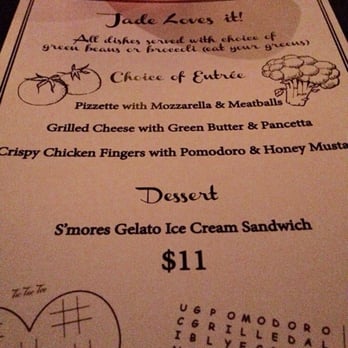 Jade Loves it!
All dishes served with choice of
green beans or broccoli (eat your greens)
Choice of Entrée
Pizzette with Mozzarella & Meatballs
Grilled Cheese with Green Butter & Pancetta
Crispy Chicken Fingers with Pomodoro & Honey Musta
Dessert
S'mores Gelato Ice Cream Sandwich
$11
Tic Tac Toe
U G P O M O D O R O
C G R I L L E D A
I B L Y E